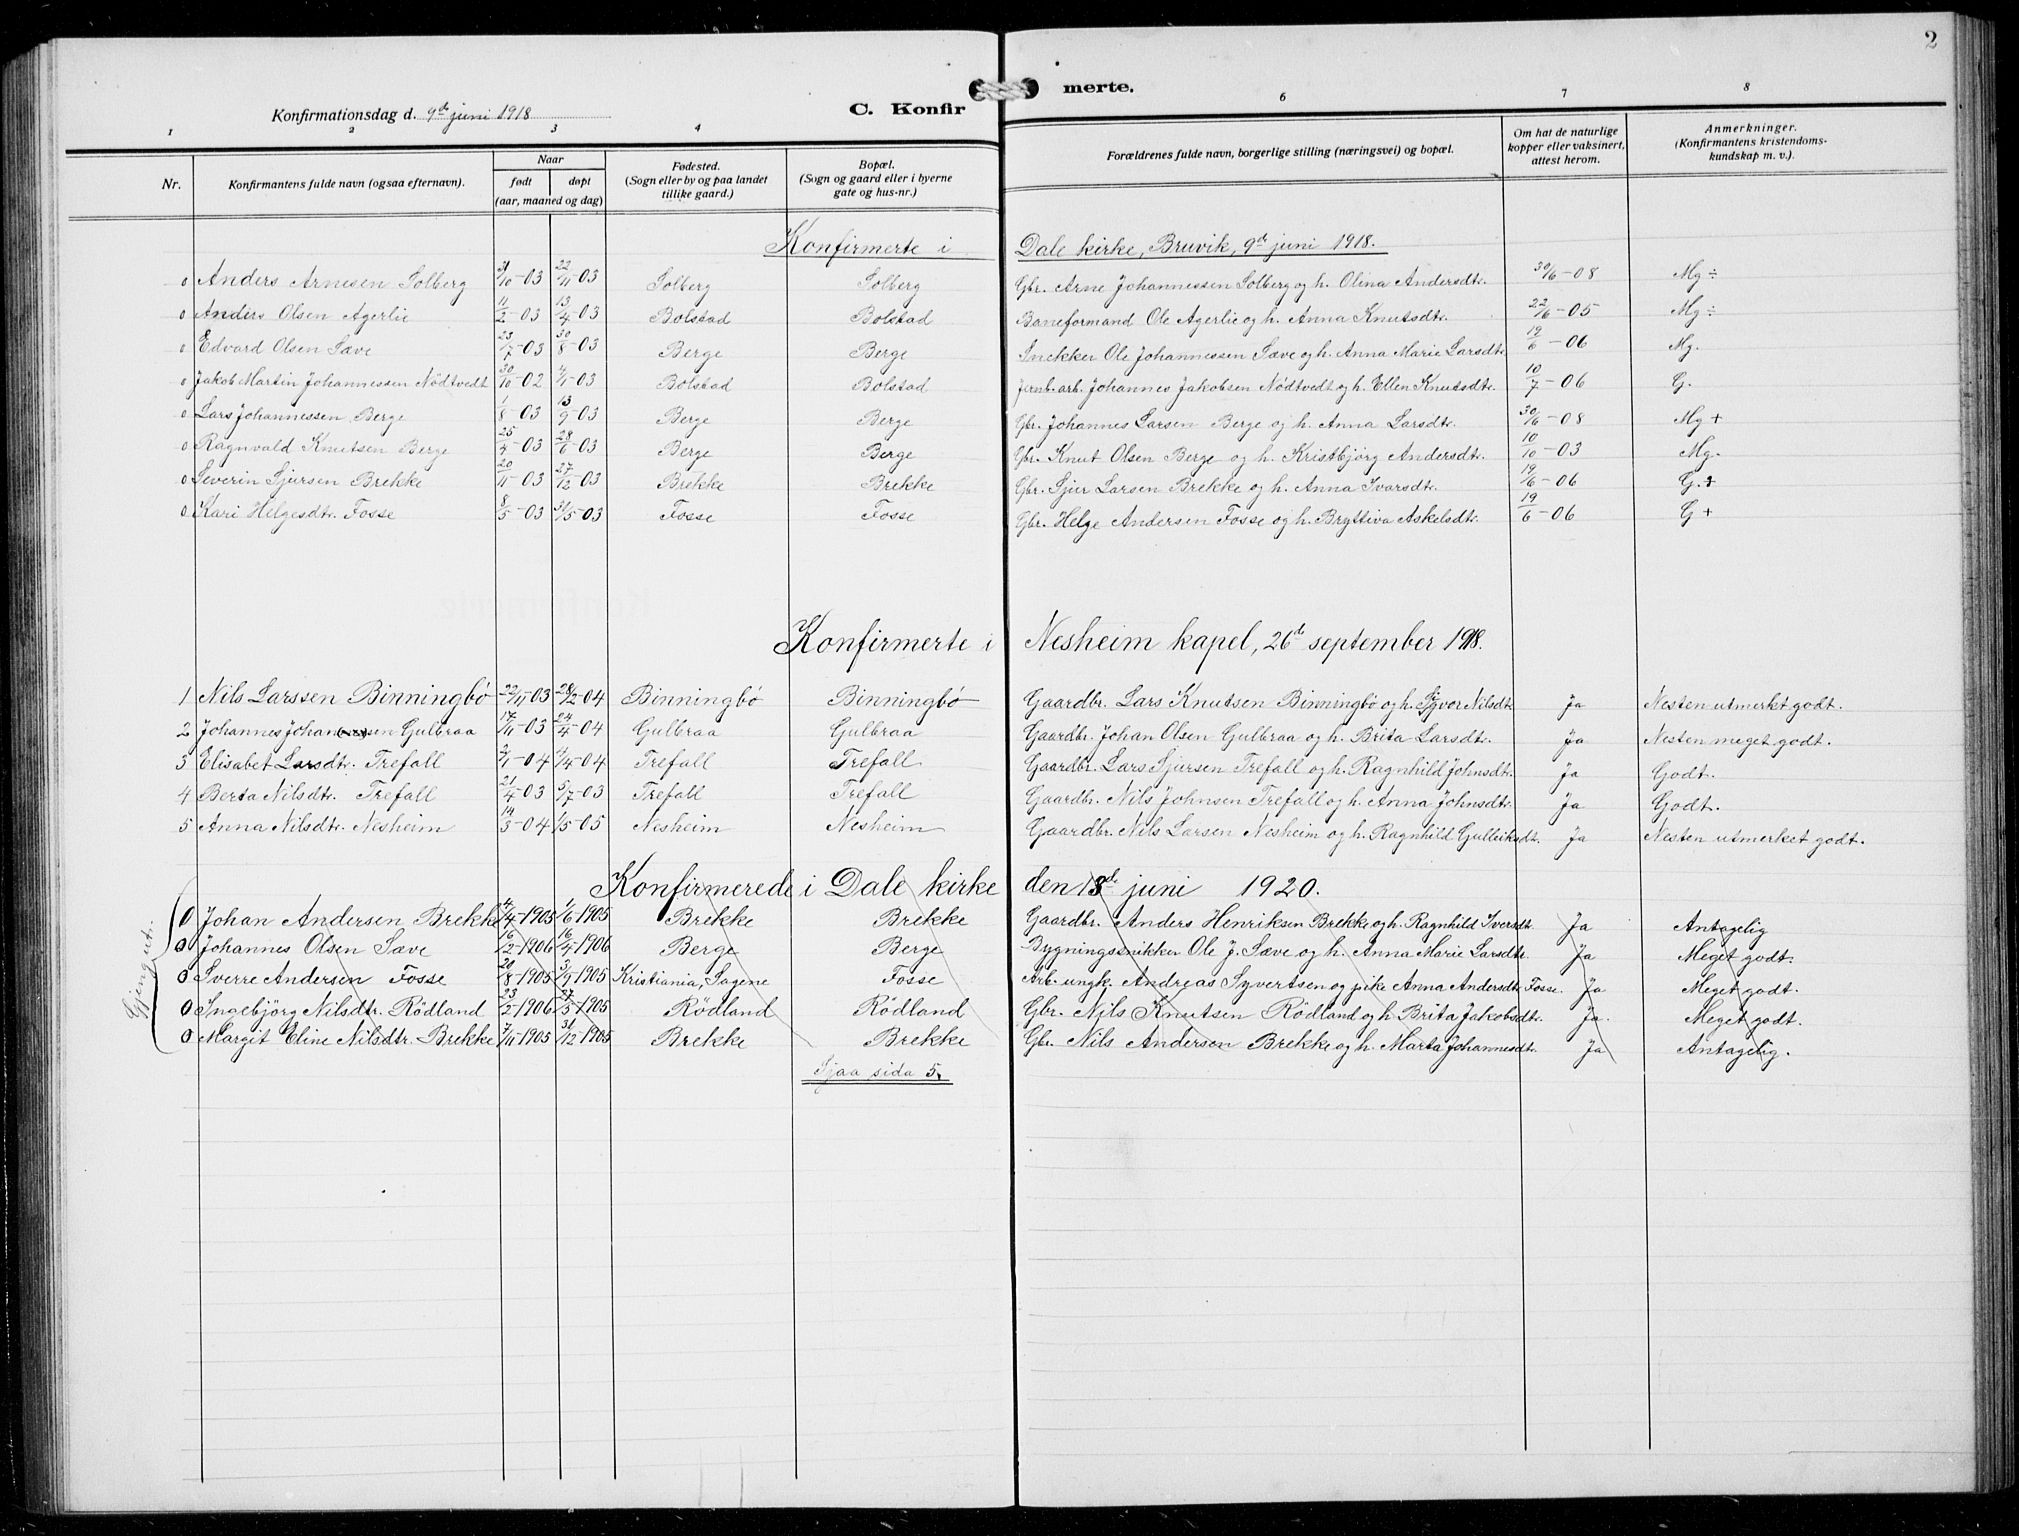 2
Konfirmationsdag d. 9de juni 1918
C. Konfirmerte.
1 2 3 4 6 7 8
Nr. Konfirmantens fulde navn (ogsaa efternavn). Naar født døpt (aar, maaned og dag) Fødested. (Sogn eller by og paa landet tillike gaard.) Bopæl. (Sogn og gaard eller i byerne gate og hus-nr.) Forældrenes fulde navn, borgerlige stilling (næringsvei) og bopæl. Om hat de naturlige kopper eller vaksinert, attest herom. Anmerkninger. (Konfirmantens kristendoms-kundskap m. v.).
Konfirmerte i Dale kirke, Bruvik, 9de juni 1918.
0 Anders Arnesen Solberg 31/10-03 22/11-03 Solberg Solberg Gbr. Arne Johannessen Solberg og h. Olina Andersdtr. 30/6-08 Mg ÷
0 Anders Olsen Agerlie 11/2-03 13/4-03 Bolstad Bolstad Baneformand Ole Agerlie og h. Anna Knutsdtr. 22/6-05 Mg ÷
0 Edvard Olsen Sæve 23/7-03 30/8-03 Berge Berge Snekker Ole Johannessen Sæve og h. Anna Marie Larsdtr. 19/6-06 Mg.
0 Jakob Martin Johannessen Nödtvedt 30/10-02 4/1-03 Bolstad Bolstad Jernb. arb. Johannes Jakobsen Nödtvedt og h. Ellen Knutsdtr. 10/7-06 G.
0 Lars Johannessen Berge 1/8-03 13/9-03 Berge Berge Gbr. Johannes Larsen Berge og h. Anna Larsdtr. 30/6-08 Mg +
0 Ragnvald Knutsen Berge 25/4-03 28/6-03 Berge Berge Gbr. Knut Olsen Berge og h. Kristbjörg Andersdtr. 10/10-03 Mg.
0 Severin Sjursen Brekke 20/11-03 27/12-03 Brekke Brekke Gbr. Sjur Larsen Brekke og h. Anna Ivarsdtr. 19/6-06 G.
0 Kari Helgesdtr. Fosse 8/5-03 31/5-03 Fosse Fosse Gbr. Helge Andersen Fosse og h. Bryttiva Askelsdtr. 19/6-06 G +
Konfirmerte i Nesheim kapel, 26de september 1918.
1 Nils Larssen Binningbø 22/11-03 28/2-04 Binningbø Binningbø Gaardbr. Lars Knutsen Binningbø og h. Nilsdtr. Ja Nesten utmerket godt.
2 Johannes Gulbraa 17/11-03 24/4-04 Gulbraa Gulbraa Gaardbr. Johan Olsen Gulbraa og h. Brita Larsdtr. Ja Nesten meget godt.
3 Elisabet Larsdtr. Trefall 2/1-04 4/4-04 Trefall Trefall Gaardbr. Lars Sjursen Trefall og h. Ragnhild Johnsdtr. Ja Godt.
4 Berta Nilsdtr. Trefall 21/4-03 5/7-03 Trefall Trefall Gaardbr. Nils Johnsen Trefall og h. Anna Johnsdtr. Ja Godt.
5 Anna Nilsdtr. Nesheim 14/3-04 1/5-05 Nesheim Nesheim Gaardbr. Nils Larsen Nesheim og h. Ragnhild Gulleiksdtr. Ja Nesten utmerket godt.
Konfirmerede i Dale kirke den 13de juni 1920.
Gjeng ut.
0 Johan Andersen Brekke 4/4-1905 1/6-1905 Brekke Brekke Gaardbr. Anders Henriksen Brekke og h. Ragnhild Iversdtr. Ja Antagelig
0 Johannes Olsen Sæve 16/2-1906 16/4-1906 Berge Berge Bygningssnikker Ole J. Sæve og h. Anna Marie Larsdtr. Ja Meget godt.
0 Sverre Andersen Fosse 20/8-1905 3/9-1905 Kristiania, Sagene Fosse Arb. ungk. Andreas Syvertsen og pike Anna Andersdtr Fosse. Ja Meget godt.
0 Ingebjörg Nilsdtr. Rödland 23/2-1906 27/5-1905 Rödland Rödland Gbr. Nils Knutsen Rödland og h. Brita Jakobsdtr. Ja. Meget godt.
0 Margit Eline Nilsdtr. Brekke 7/11-1905 31/12-1905 Brekke Brekke Gbr. Nils Andersen Brekke og h. Marta Johannesdtr. Ja Antagelig.
Sjaa sida 5.